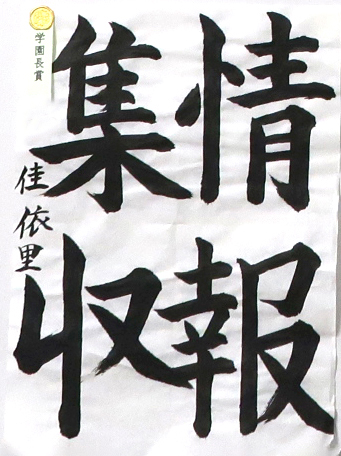 情報
収集
佳依里
学園長賞